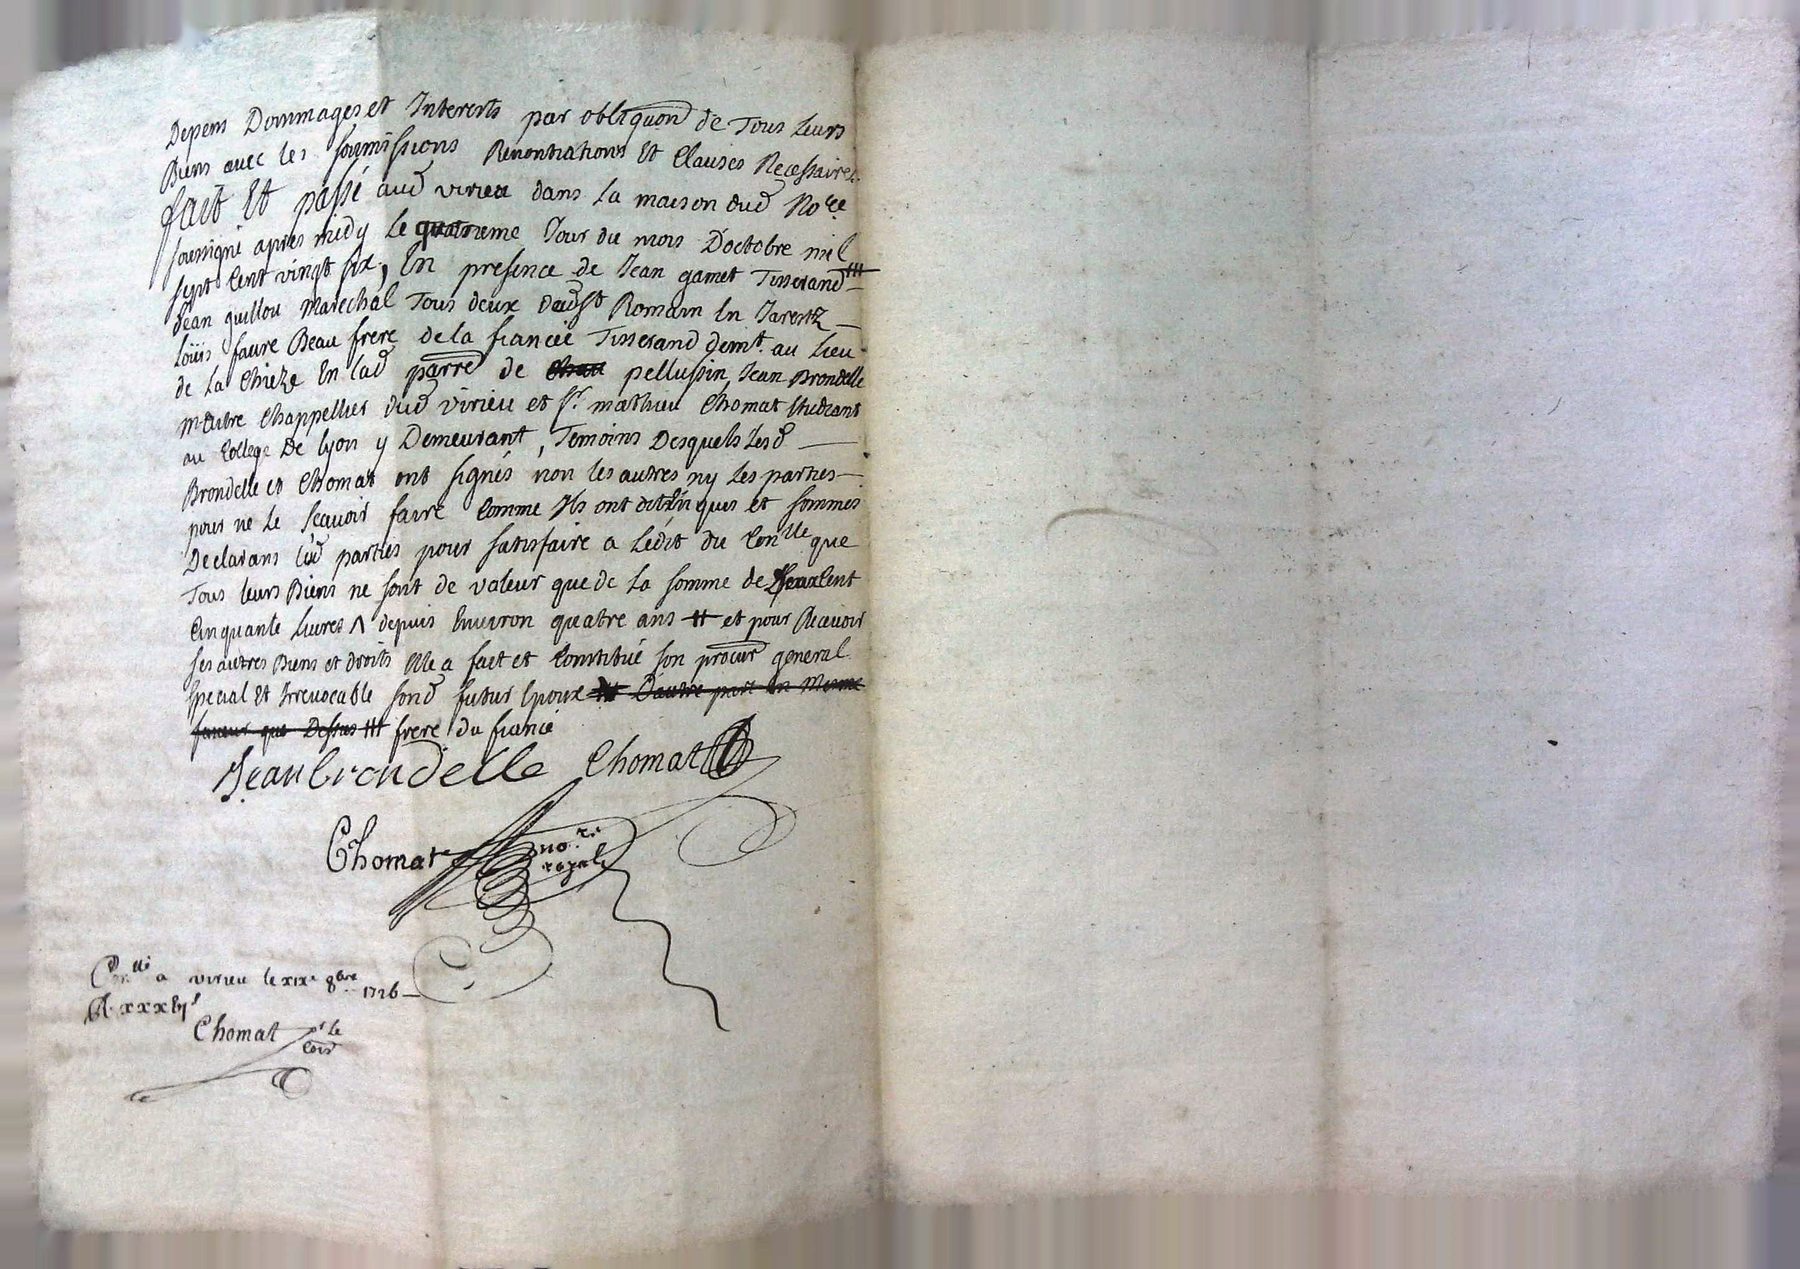 Depens Dommages et Interests par obliguon de Tous Leurs
Biens avec les soumissions Renontiations Et Clauses Necessaires
fait Et passé aud virieu dans La maison dud No.re
soussigné apres midy Le quatrieme Jour du mois D'octobre mil
sept Cent vingt six, En presence de Jean gamet Tisserand
Jean guillou marechal Tous deux dudst Romain En Jarestz
Loüis faure Beau frere de la fiancée Tisserand demt. au Lieu
de La Chieze En lad parre de pellussin Jean Brondelle
maitre Chappellier dud virieu et Sr. mathieu Chomat studiant
au College De lyon y Demeurant, Temoins Desquels Lesd
Brondelle et Chomat ont signés non les autres ny Les parties
pour ne Le scavoir faire Comme Ils ont dit Enquis et sommés
Declarans lesd parties pour satisfaire a Ledit du Conlle que
Tous leurs Biens ne sont de valeur que de La somme de Cent
Cinquante Livres Λ depuis Environ quatre ans # et pour Recevoir
ses autres Biens et droits Elle a fait et Constitué son procur general
special Et Irrevocable sond futur Epoux D'autre part En Mesme
faveur que Dessus frere du fiancé
Jean brondelle Chomat
Chomat no.re
royal
Conlle a virieu le xixe 8bre 1726
Chomat